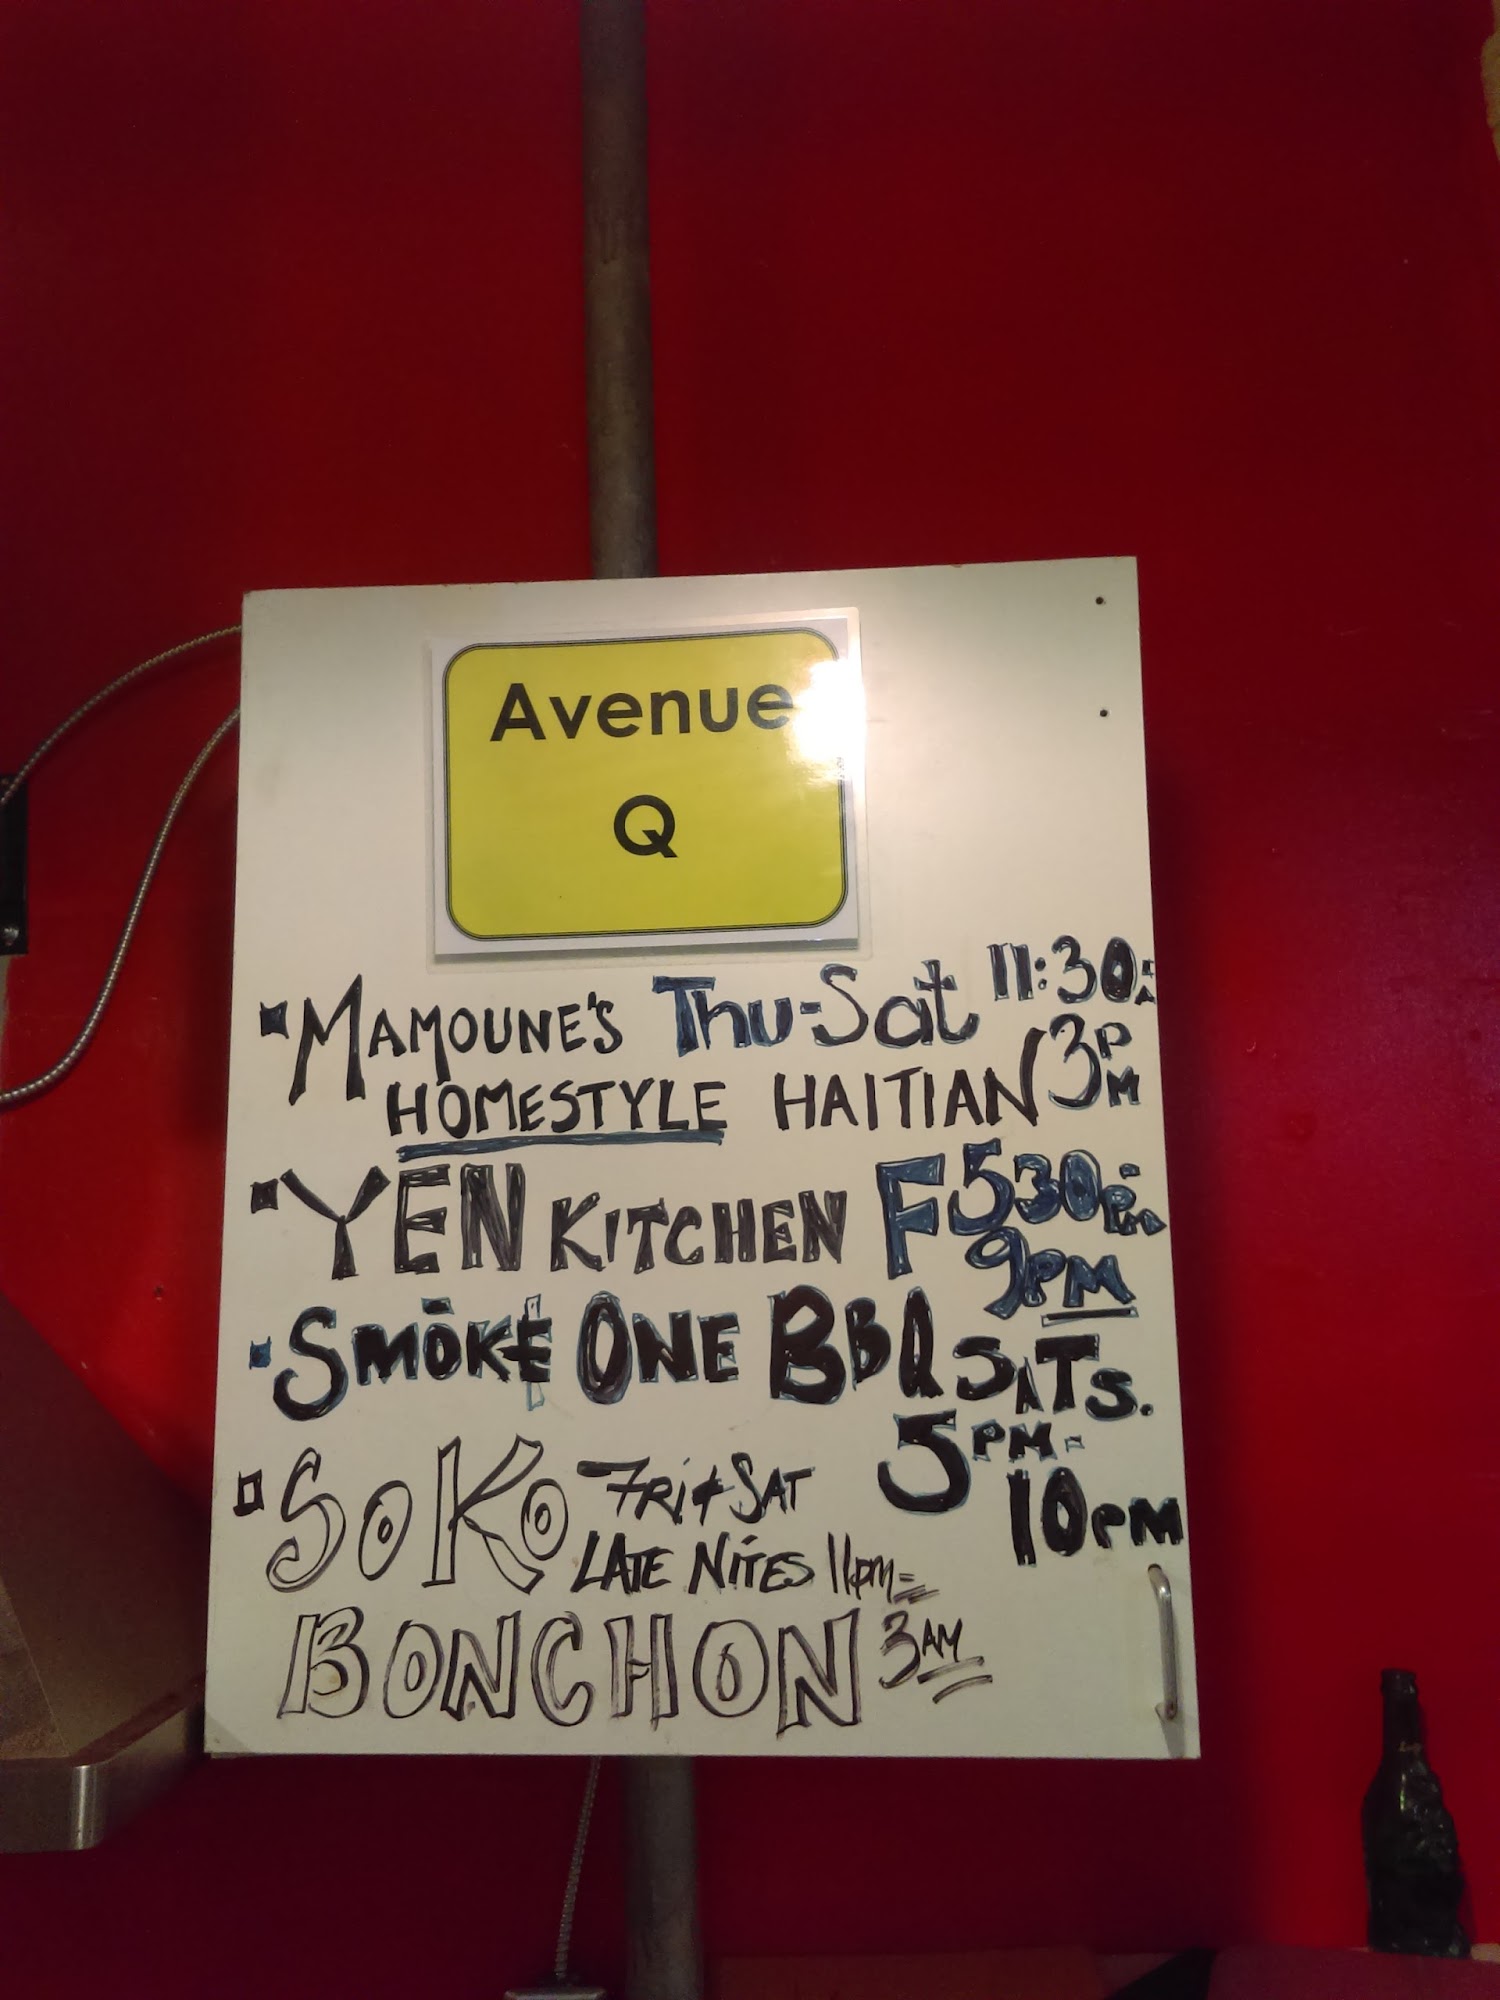 Avenue
Q
MAMOUNE'S Thu-Sat 11:30-
HOMESTYLE HAITIAN 3PM
YEN KITCHEN F 530-
9PM
SMOKE ONE BBQ SATS.
5PM-
10PM
SOKO FRI & SAT
LATE NITES 11pm-
BONCHON 3AM